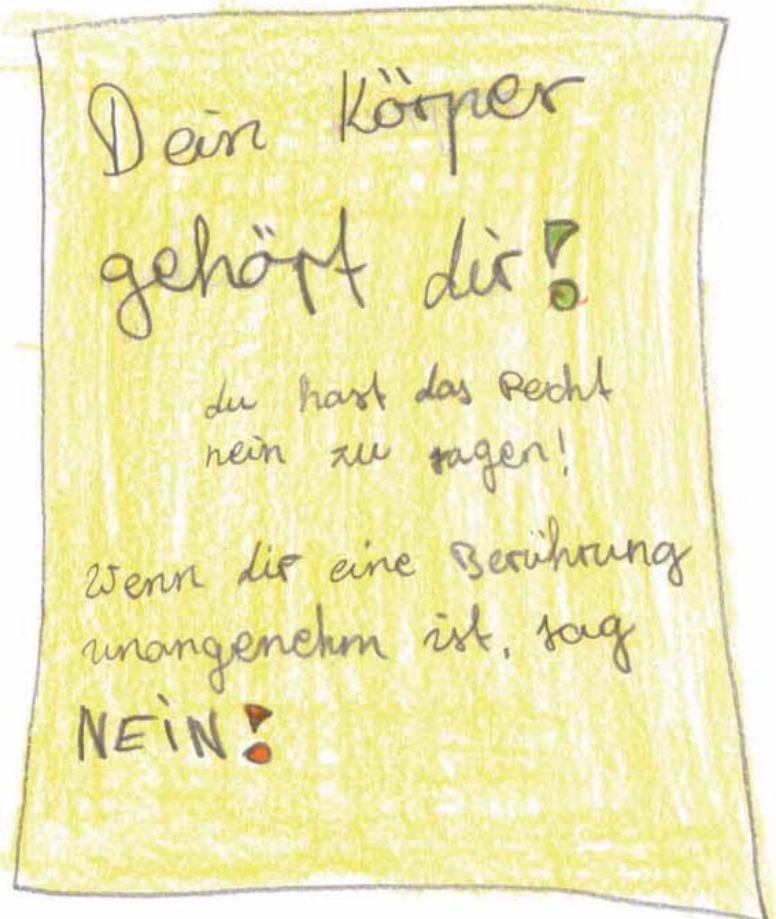 Dein Körper
gehört dir!
du hast das Recht
nein zu sagen!
Wenn dir eine Berührung
unangenehm ist, sag
NEiN!